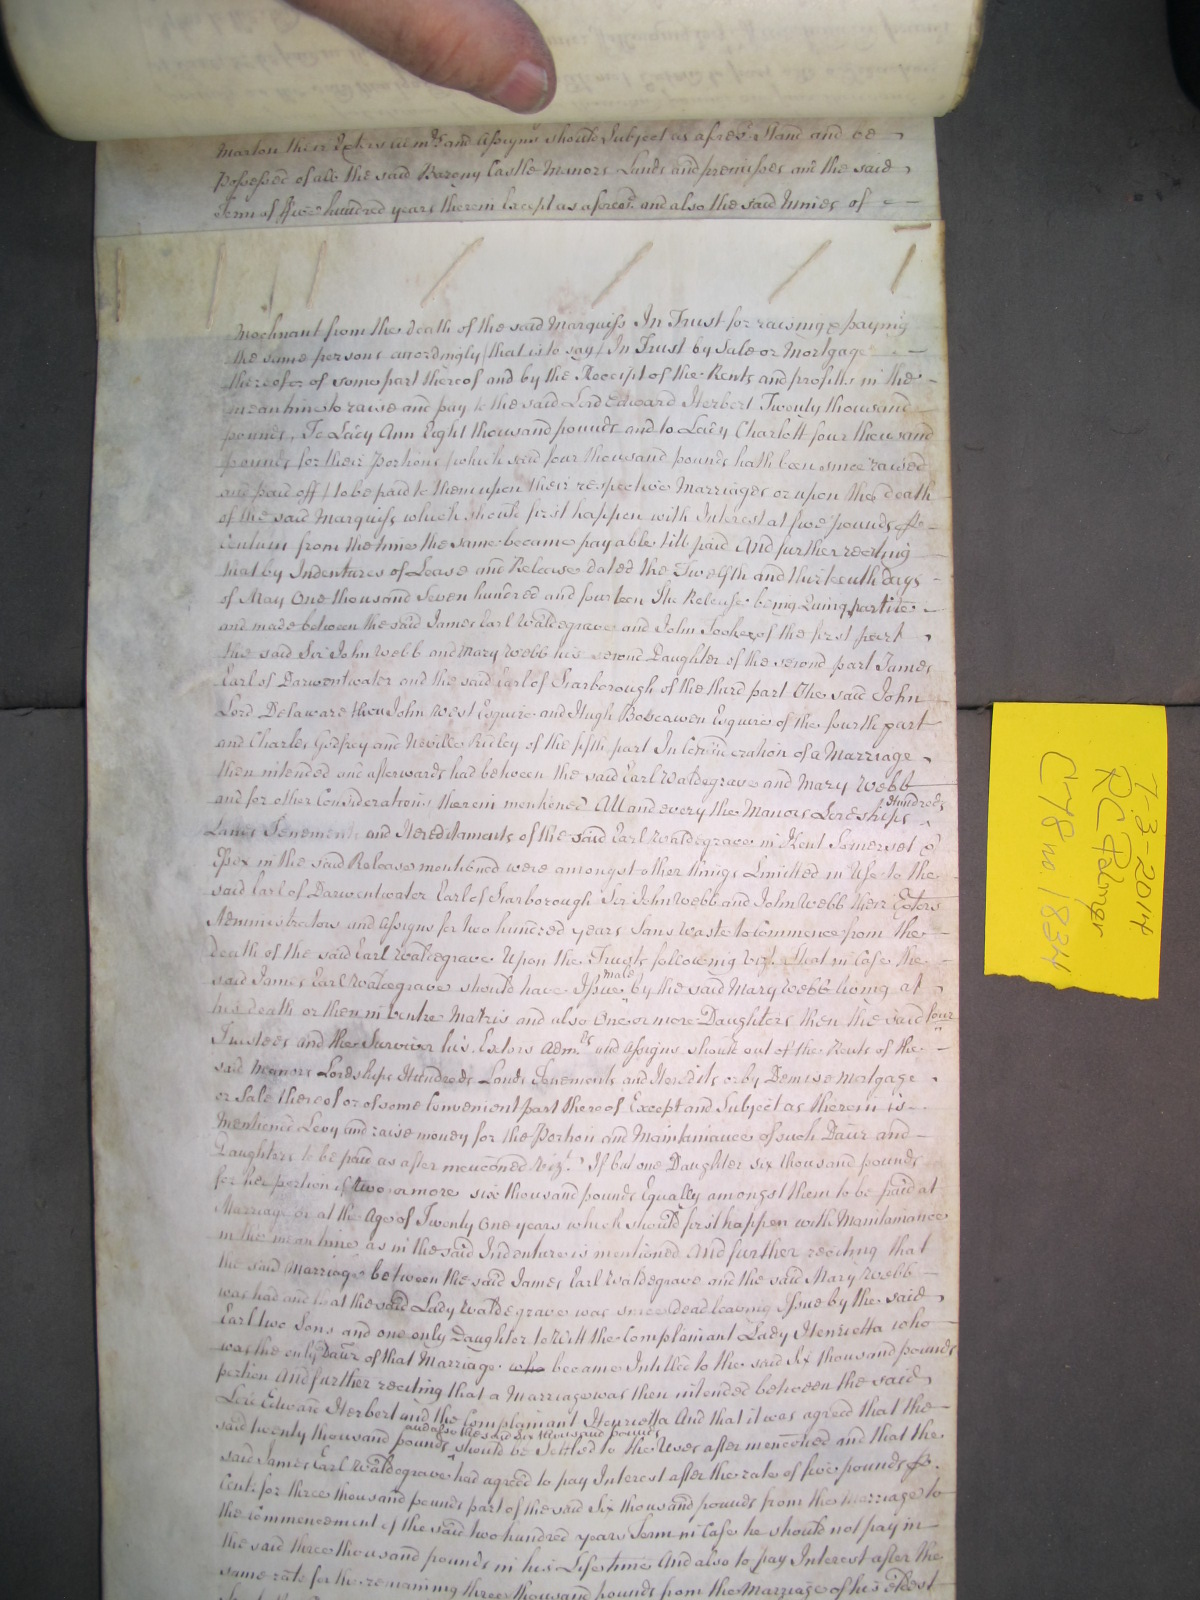 Marton their Exters Adm.rs and Assigns should Subject as afores.d Stand and be
possessed of all the said Barony Castle Manors Lands and premisses and the said
Term of five hundred years therein Except as afores.d and also the said Mines of
Mochnant from the death of the said Marquiss In Trust for raising & paying
the same persons accordingly (that is to say) In Trust by Sale or Mortgage
thereof or of some part thereof and by the Receipt of the Rents and profitts in the
meantime to raise and pay to the said Lord Edward Herbert Twenty thousand
pounds, To Lady Ann Eight thousand pounds and to Lady Charlott four thousand
pounds for their Portions (which said four thousand pounds hath been since raised
and paid off) to be paid to them upon their respective Marriages or upon the death
of the said Marquiss which should first happen with Interest at five pounds p.
Centum from the time the same became payable till paid And further reciting
that by Indentures of Lease and Release dated the Twelfth and thirteenth days
of May One thousand Seven hundred and fourteen the Release being Quinq partite
and made between the said James Earl Waldegrave and John Tooker of the first part
the said Sir John Webb and Mary Webb his second Daughter of the second part James
Earl of Darwentwater and the said Earl of Scarborough of the third part The said John
Lord Delaware then John West Esquire and Hugh Boscawen Esquire of the fourth part
and Charles Godfrey and Neville Ridley of the fifth part In Consideration of a Marriage
then intended and afterwards had between the said Earl Waldegrave and Mary Webb
and for other Considerations therein mentioned All and every the Manors Lordships Hundreds
Lands Tenements and Hereditaments of the said Earl Waldegrave in Kent Somerset &
Essex in the said Release mentioned were amongst other things Limitted in Use to the
said Earl of Darwentwater Earl of Scarborough Sir John Webb and John Webb their Exters
Administrators and Assigns for two hundred years Sans waste to Commence from the
death of the said Earl Waldegrave Upon the Trusts following viz.t That in Case the
said James Earl Waldegrave should have Issue male by the said Mary Webb living at
his death or then in Ventre Matris and also One or more Daughters then the said four
Trustees and the Survivor his Extors Adm.rs and Assigns should out of the Rents of the
said Manors Lordships Hundreds Lands Tenements and Heredits or by Demise Mortgage
or Sale thereof or of some Convenient part thereof Except and Subject as therein is
mentioned Levy and raise money for the Portion and Maintainance of such Daur and
Daughters to be paid as after mencōned Viz.t If but one Daughter six thousand pounds
for her portion if two or more six thousand pounds Equally amongst them to be paid at
Marriage or at the Age of Twenty One years which should first happen with Maintainance
in the mean time as in the said Indenture is mentioned And further reciting that
the said Marriage between the said James Earl Waldegrave and the said Mary Webb
was had and that the said Lady Waldegrave was since dead leaving Issue by the said
Earl two Sons and one only Daughter to Witt the Complainant Lady Henrietta who
was the only Daur of that Marriage who became Intitled to the said Six thousand pounds
portion And further reciting that a Marriage was then intended between the said
Lord Edward Herbert and the Complainant Henrietta And that it was agreed that the
said twenty thousand pounds and also the said six thousand pounds should be Settled to the Uses after mencōned and that the
said James Earl Waldegrave had agreed to pay Interest after the rate of five pounds p.
Cent for three thousand pounds part of the said Six thousand pounds from the marriage to
the Commencement of the said two hundred years Term in Case he should not pay in
the said three thousand pounds in his Lifetime And also to pay Interest after the
same rate for the remaining three thousand pounds from the Marriage of his eldest
7-3-2014
RC Palmer
C78 no. 1834